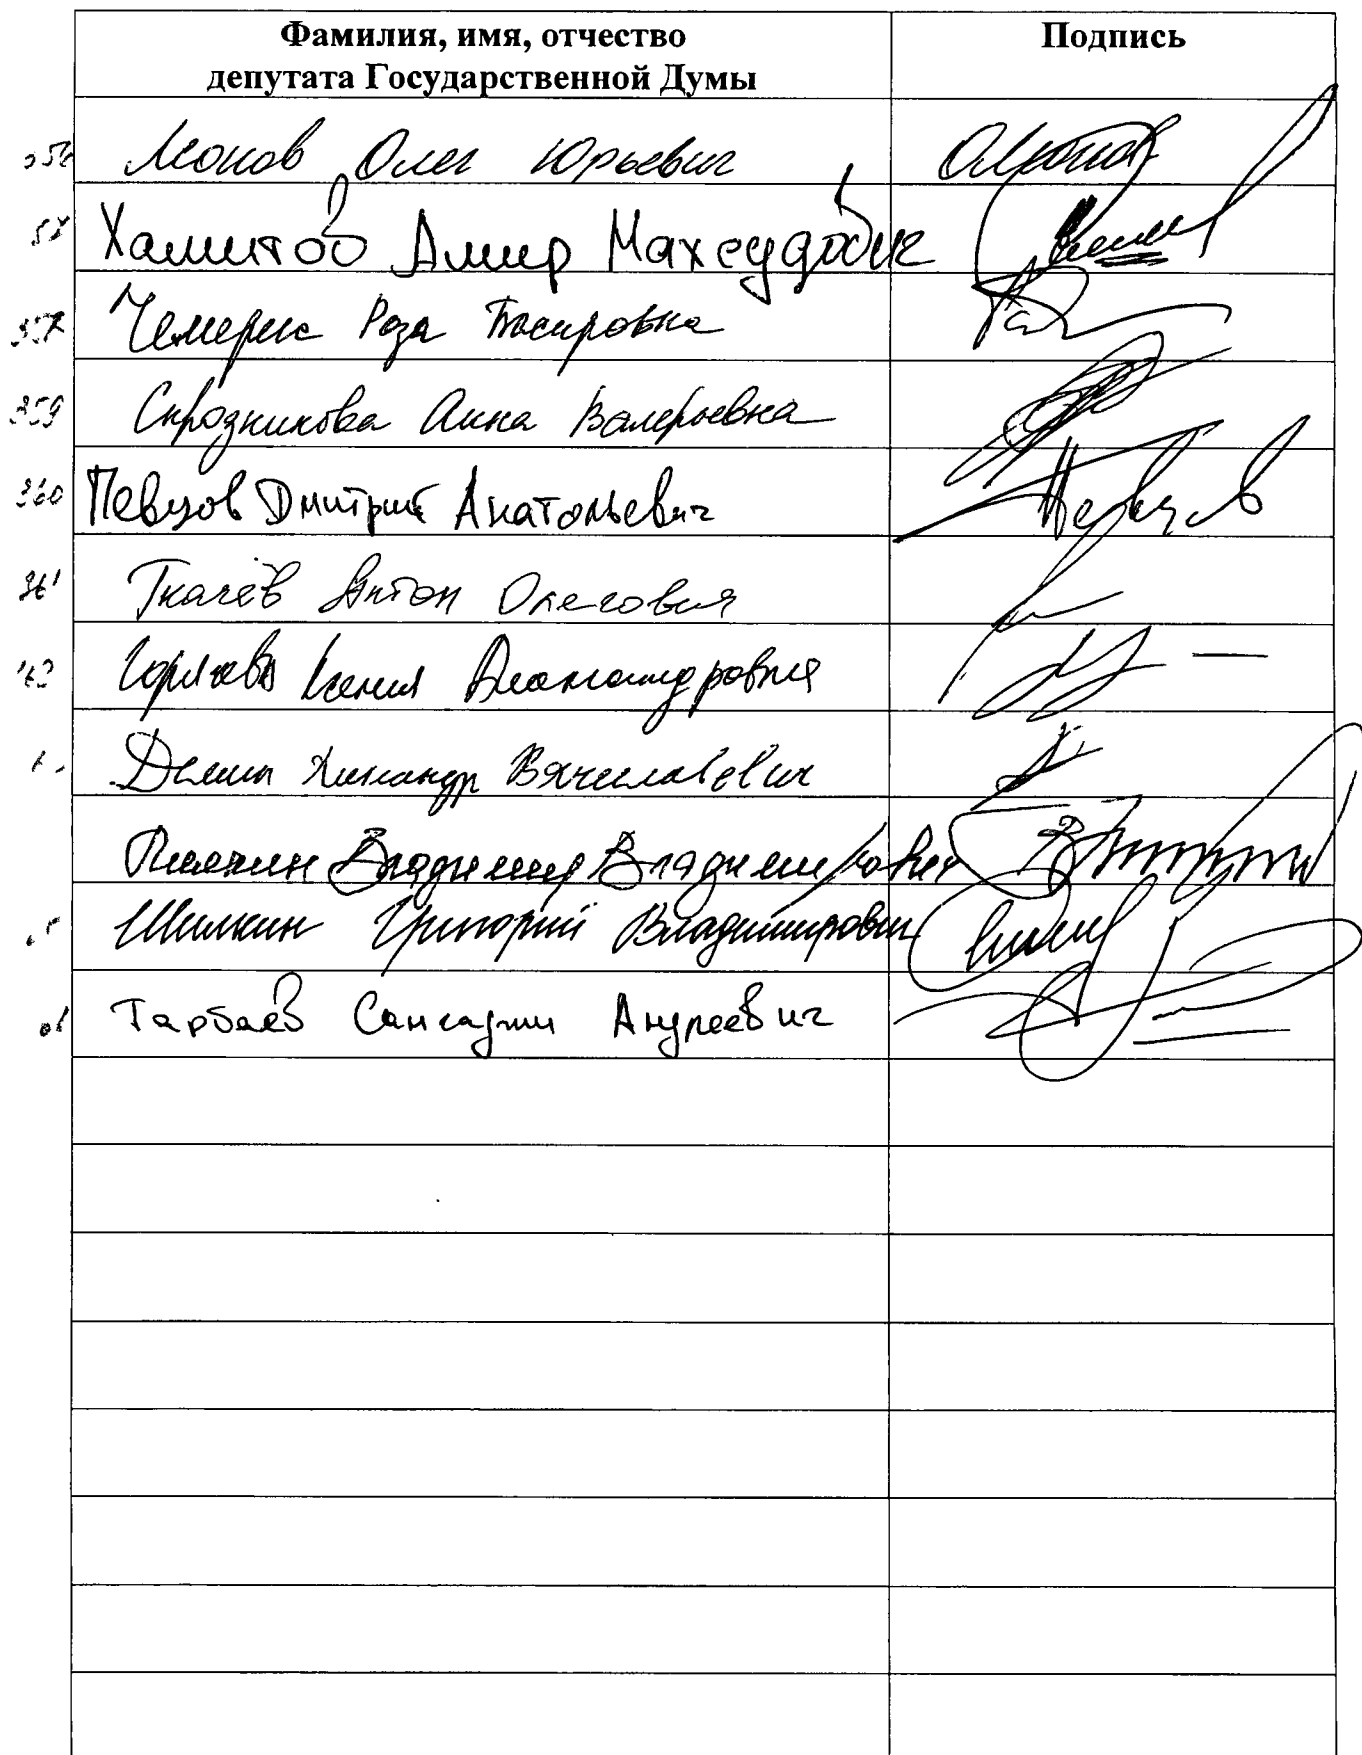 Фамилия, имя, отчество Подпись
депутата Государственной Думы
Леонов Олег Юрьевич
Хамитов Амир Махсудович
Чемерис Роза Басировна
359 Скрозникова Анна Валерьевна
360 Певцов Дмитрий Анатольевич Певцов
361 Ткачёв Антон Олегович
Горячева Ксения Александровна
Демин Александр Вячеславович
Плякин Владимир Владимирович
Шилкин Григорий Владимирович
Тарбаев Сангаджи Андреевич